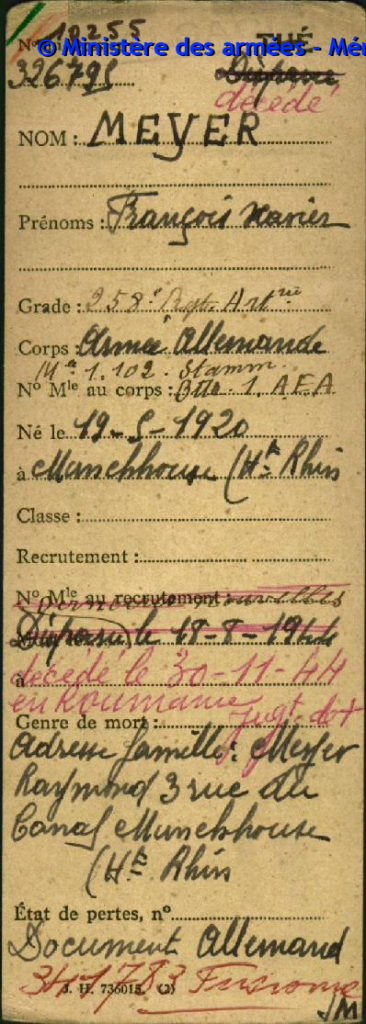 N° 10.255
© Ministère des armées - Mé
326795
TUÉ
Disparu
décédé
NOM : MEYER
Prénoms : François Xavier
Grade : 258e Regt. Artrie
Corps : Armée Allemande
Mle 1.102. Stamm.
N° Mle au corps : Btte. 1. A.E.A
Né le 19-5-1920
à Munchhouse (Ht Rhin
Classe :
Recrutement :
N° Mle au recrutement :
dernières nouvelles
Disparu le 18-8-1944
décédé le 30-11-44
à
en Roumanie jugt. det
Genre de mort :
Adresse famille : Meyer
Raymond 3 rue du
Canal Munchhouse
(Ht Rhin
État de pertes, n°
Document Allemand
341783 Fusionné
J. H. 736015. (2)
JM